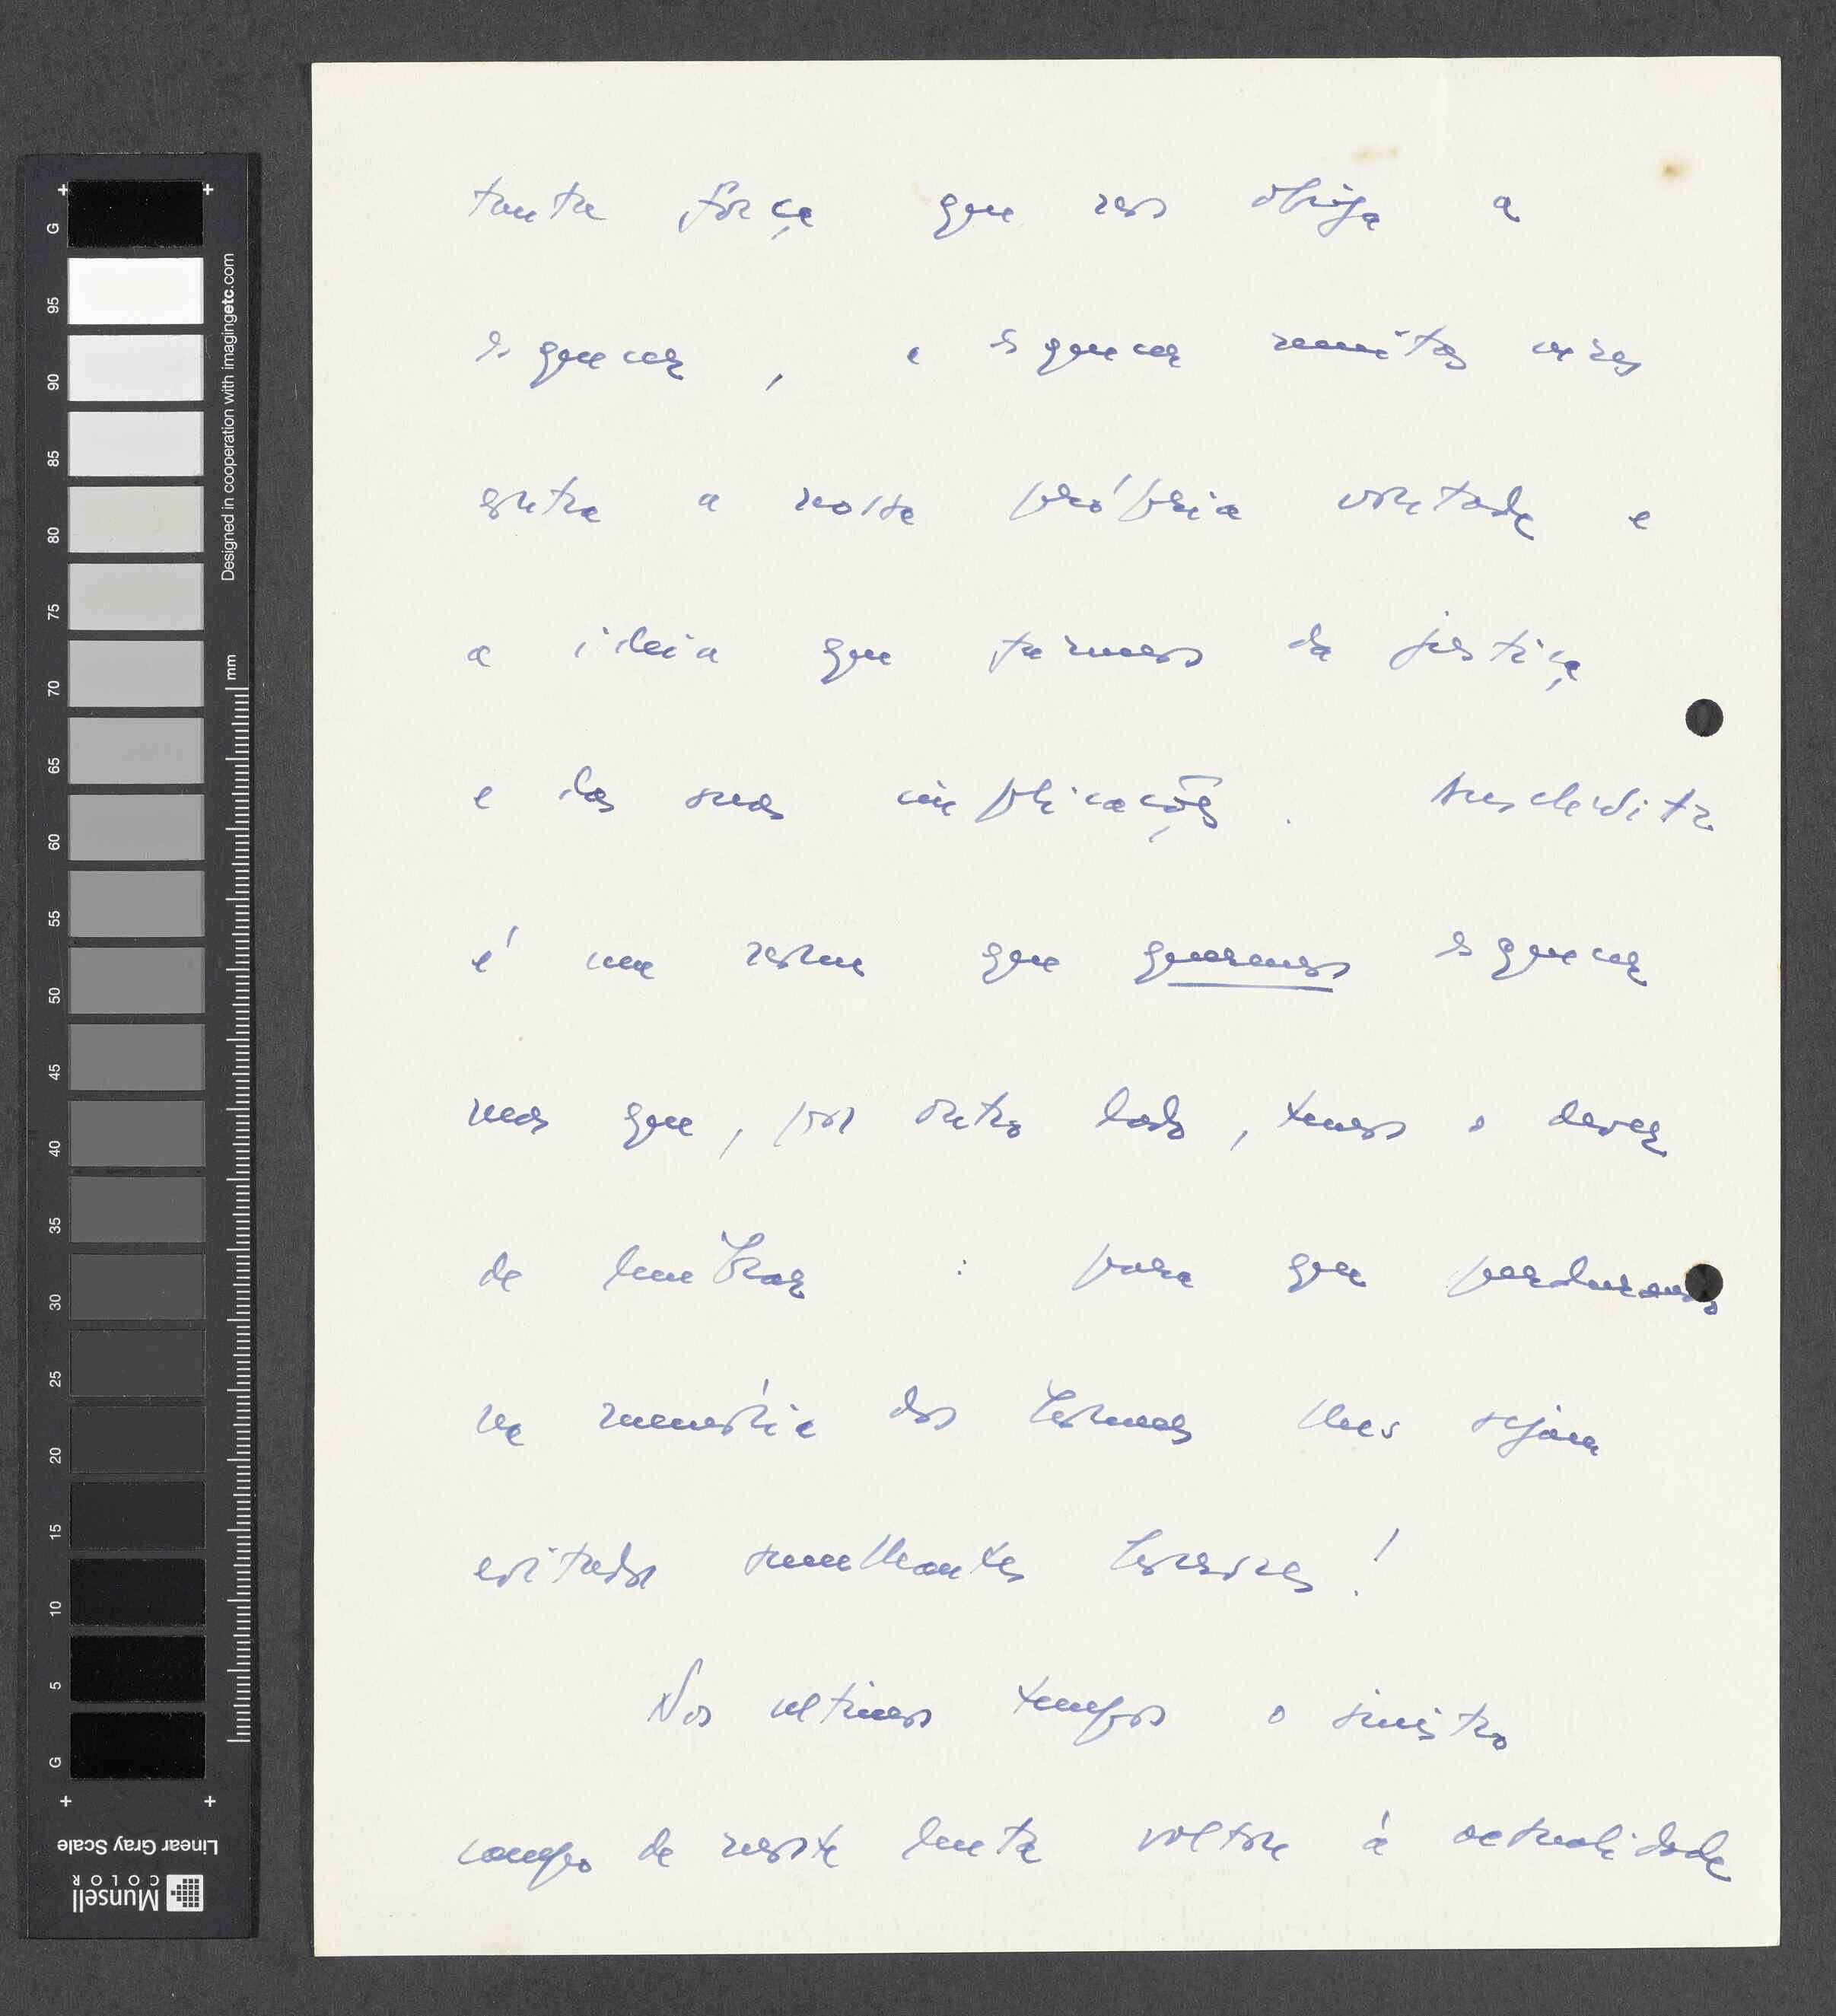 tanta força que nos obriga a
esquecer, e esquecer muitas vezes
contra a nossa própria vontade e
a ideia que fazemos da justiça
e das suas implicações. Auschwitz
é um nome que queremos esquecer
mas que, por outro lado, temos o dever
de lembrar: para que perdurando
na memória dos homens lhes sejam
evitados semelhantes horrores!
Nos ultimos tempos o sinistro
campo de morte lenta voltou à actualidade
G
95
90
85
80
75
70
65
60
55
50
45
40
35
30
25
20
15
10
5
G
mm
Designed in cooperation with imagingetc.com
Linear Gray Scale
Munsell
COLOR